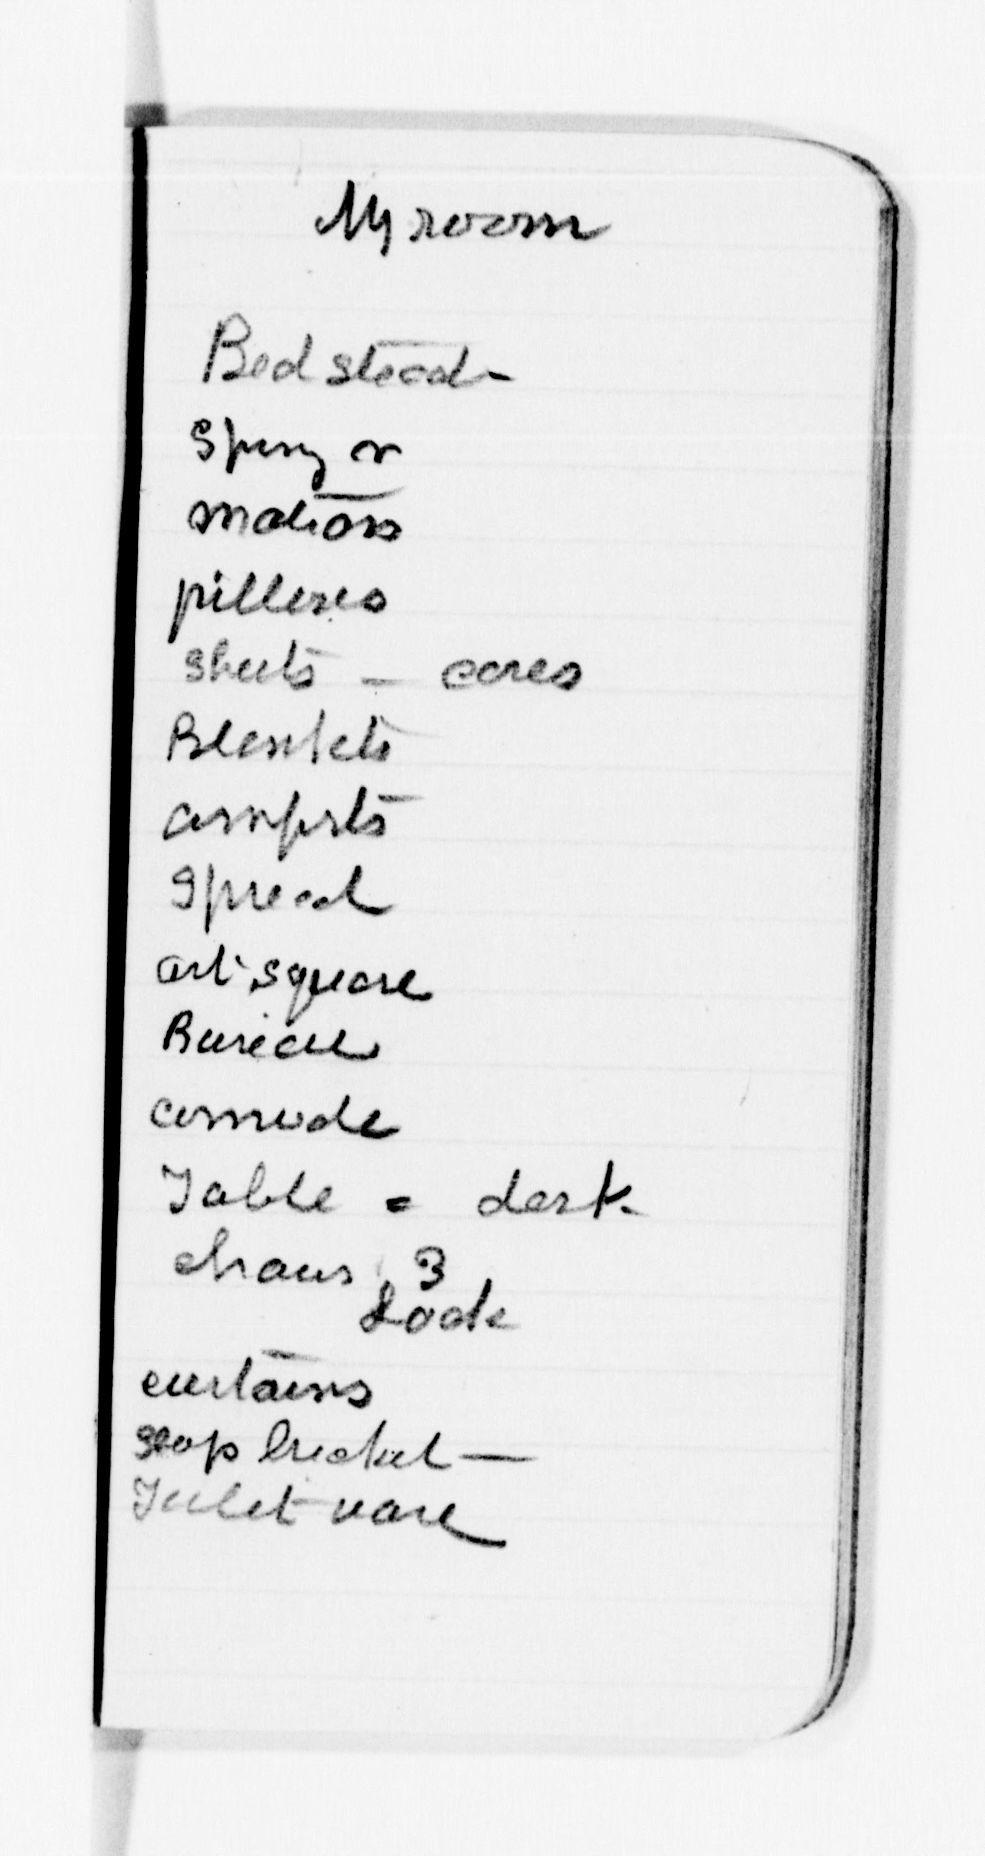 My room
Bedstead -
Spring or
matrass
pillows
Sheets - cases
Blankets
comforts
Spread
art square
Bureau
comode
Table = desk -
chairs 3
curtains
slop bucket —
Toilet ware